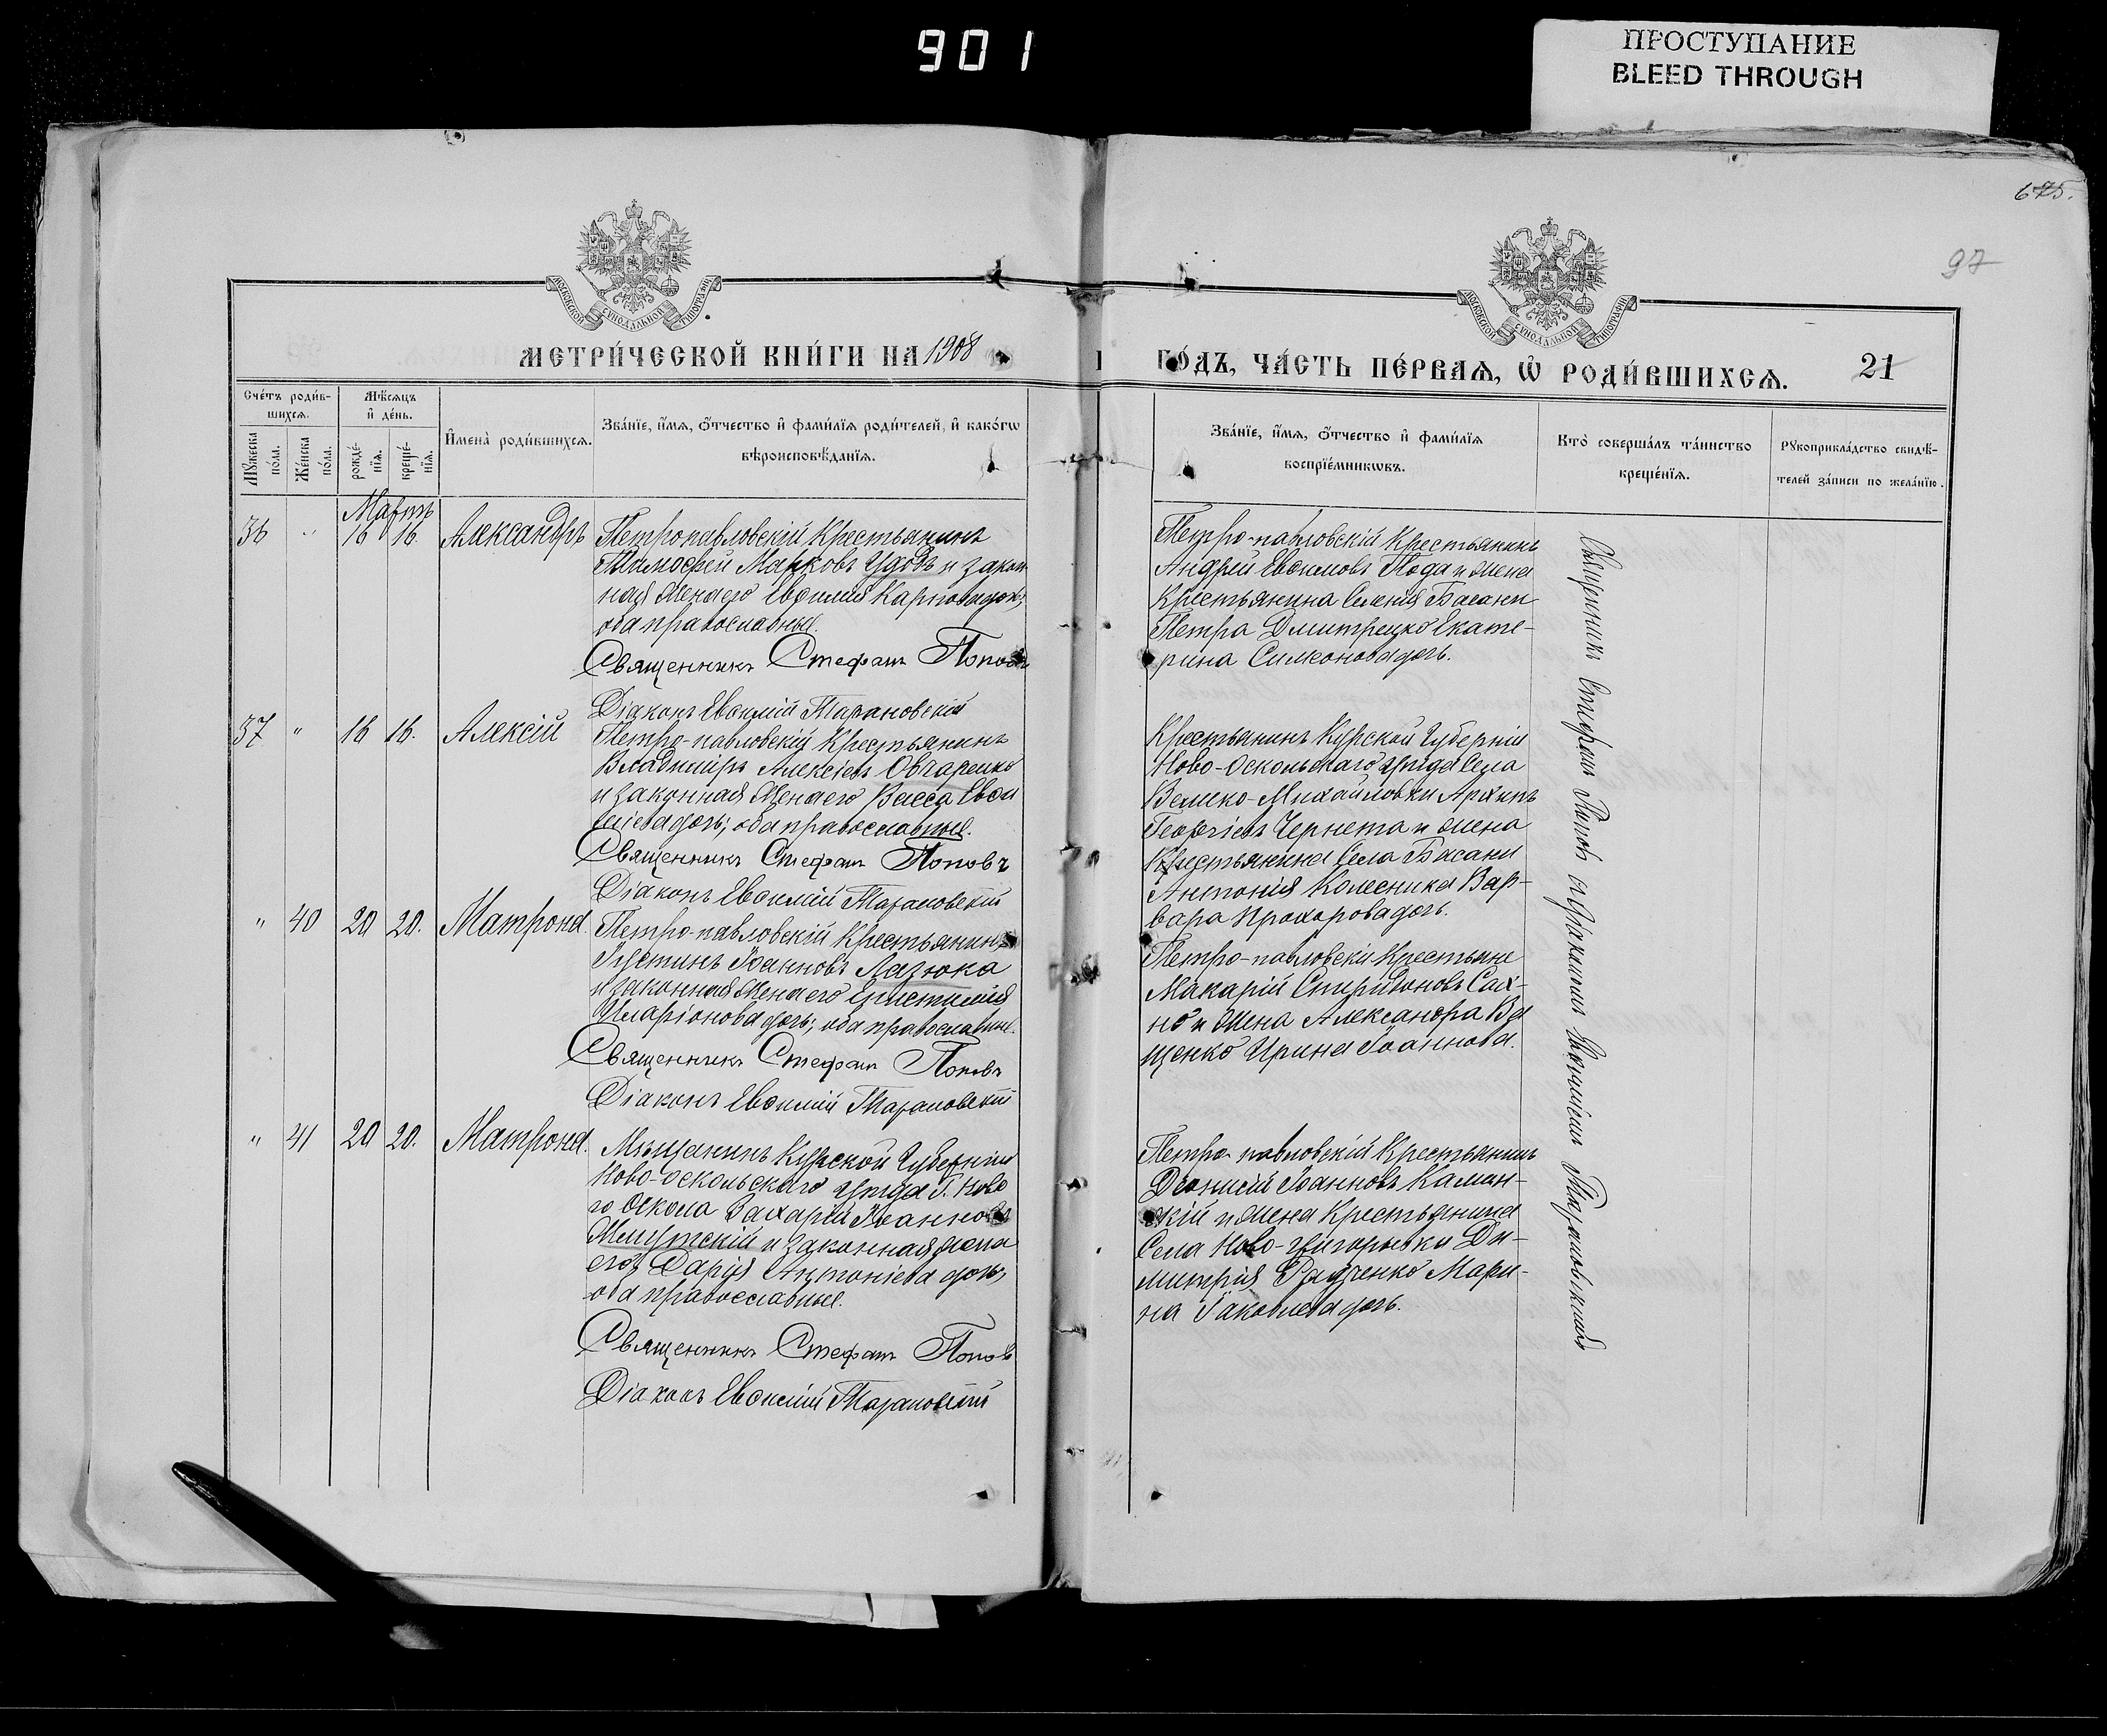 901
ПРОСТУПАНИЕ
BLEED THROUGH
675.
97
МОСКОВСКОЙ СѴНОДАЛЬНОЙ ТИПОГРАФІИ
МОСКОВСКОЙ СѴНОДАЛЬНОЙ ТИПОГРАФІИ
МЕТРИ́ЧЕСКОЙ КНИ́ГИ НА 1908
ГО́ДЪ, ЧА́СТЬ ПЕ́РВАѦ, Ѡ҆ РОДИ́ВШИХСѦ.
21
Сче́тъ роди́в-
шихсѧ.
Мѣ́сѧцъ
и҆ де́нь.
Мꙋ́жеска
по́ла.
Же́нска
по́ла.
рожде́-
нїѧ.
креще́-
нїѧ.
И҆мена̀ роди́вшихсѧ.
Зва́нїе, и҆́мѧ, ѻ҆́тчество и҆ фами́лїѧ роди́телей, и҆ како́гѡ
вѣроисповѣ́данїѧ.
Зва́нїе, и҆́мѧ, ѻ҆́тчество и҆ фами́лїѧ
воспрїе́мникѡвъ.
Кто̀ соверша́лъ та́инство
креще́нїѧ.
Рꙋкоприкла́дство свидѣ́-
телей за́писи по жела́нїю.
Мартъ
36 " 16 16. Александръ
Петропавловскій Крестьянинъ
Тимофей Марковъ Удодъ и закон
ная жена его Евѳимія Карпова дочь,
оба православные.
Священникъ Стефанъ Поповъ
Діаконъ Евѳимій Тарановскій
Петро-павловскій Крестьянинъ
Андрей Евѳимовъ Пода и жена
Крестьянина Селенія Басани
Петра Дмитренко Екате-
рина Симеонова дочь.
37 " 16 16. Алексій
Петро-павловскій Крестьянинъ
Владиміръ Алексіевъ Овчаренко
и законная жена его Васса Евѳи
міева дочь; оба православные.
Священникъ Стефанъ Поповъ
Діаконъ Евѳимій Тарановскій
Крестьянинъ Курской Губерніи
Ново-Оскольскаго уѣзда Села
Велико-Михайловки Архипъ
Георгіевъ Чернета и жена
Крестьянина Села Басани
Антонія Колесника Вар-
вара Прохорова дочь.
" 40 20 20. Матрона.
Петро-павловскій Крестьянинъ
Іустинъ Іоанновъ Лазюка
и законная жена его Епистимія
Иларіонова дочь; оба православные.
Священникъ Стефанъ Поповъ
Діаконъ Евѳимій Тарановскій
Петро-павловскіе Крестьяне
Макарій Спиридоновъ Сах-
но и жена Александра Ва
щенко Ирина Іоаннова.
" 41 20 20. Матрона.
Мѣщанинъ Курской Губерніи
Ново-оскольскаго уѣзда Г. Ново
го Оскола Захарій Іоанновъ
и законная жена
его Дарія Антоніева дочь,
оба православные.
Священникъ Стефанъ Поповъ
Діаконъ Евѳимій Тарановскій
Петро-павловскій Крестьянинъ
Діонисій Іоанновъ Камин-
скій и жена Крестьянина
Села Ново-григорьевки Ди-
митрія Радченко Мари-
на Іаковлева дочь.
Священникъ Стефанъ Поповъ съ Діакономъ Евѳиміемъ Тарановскимъ